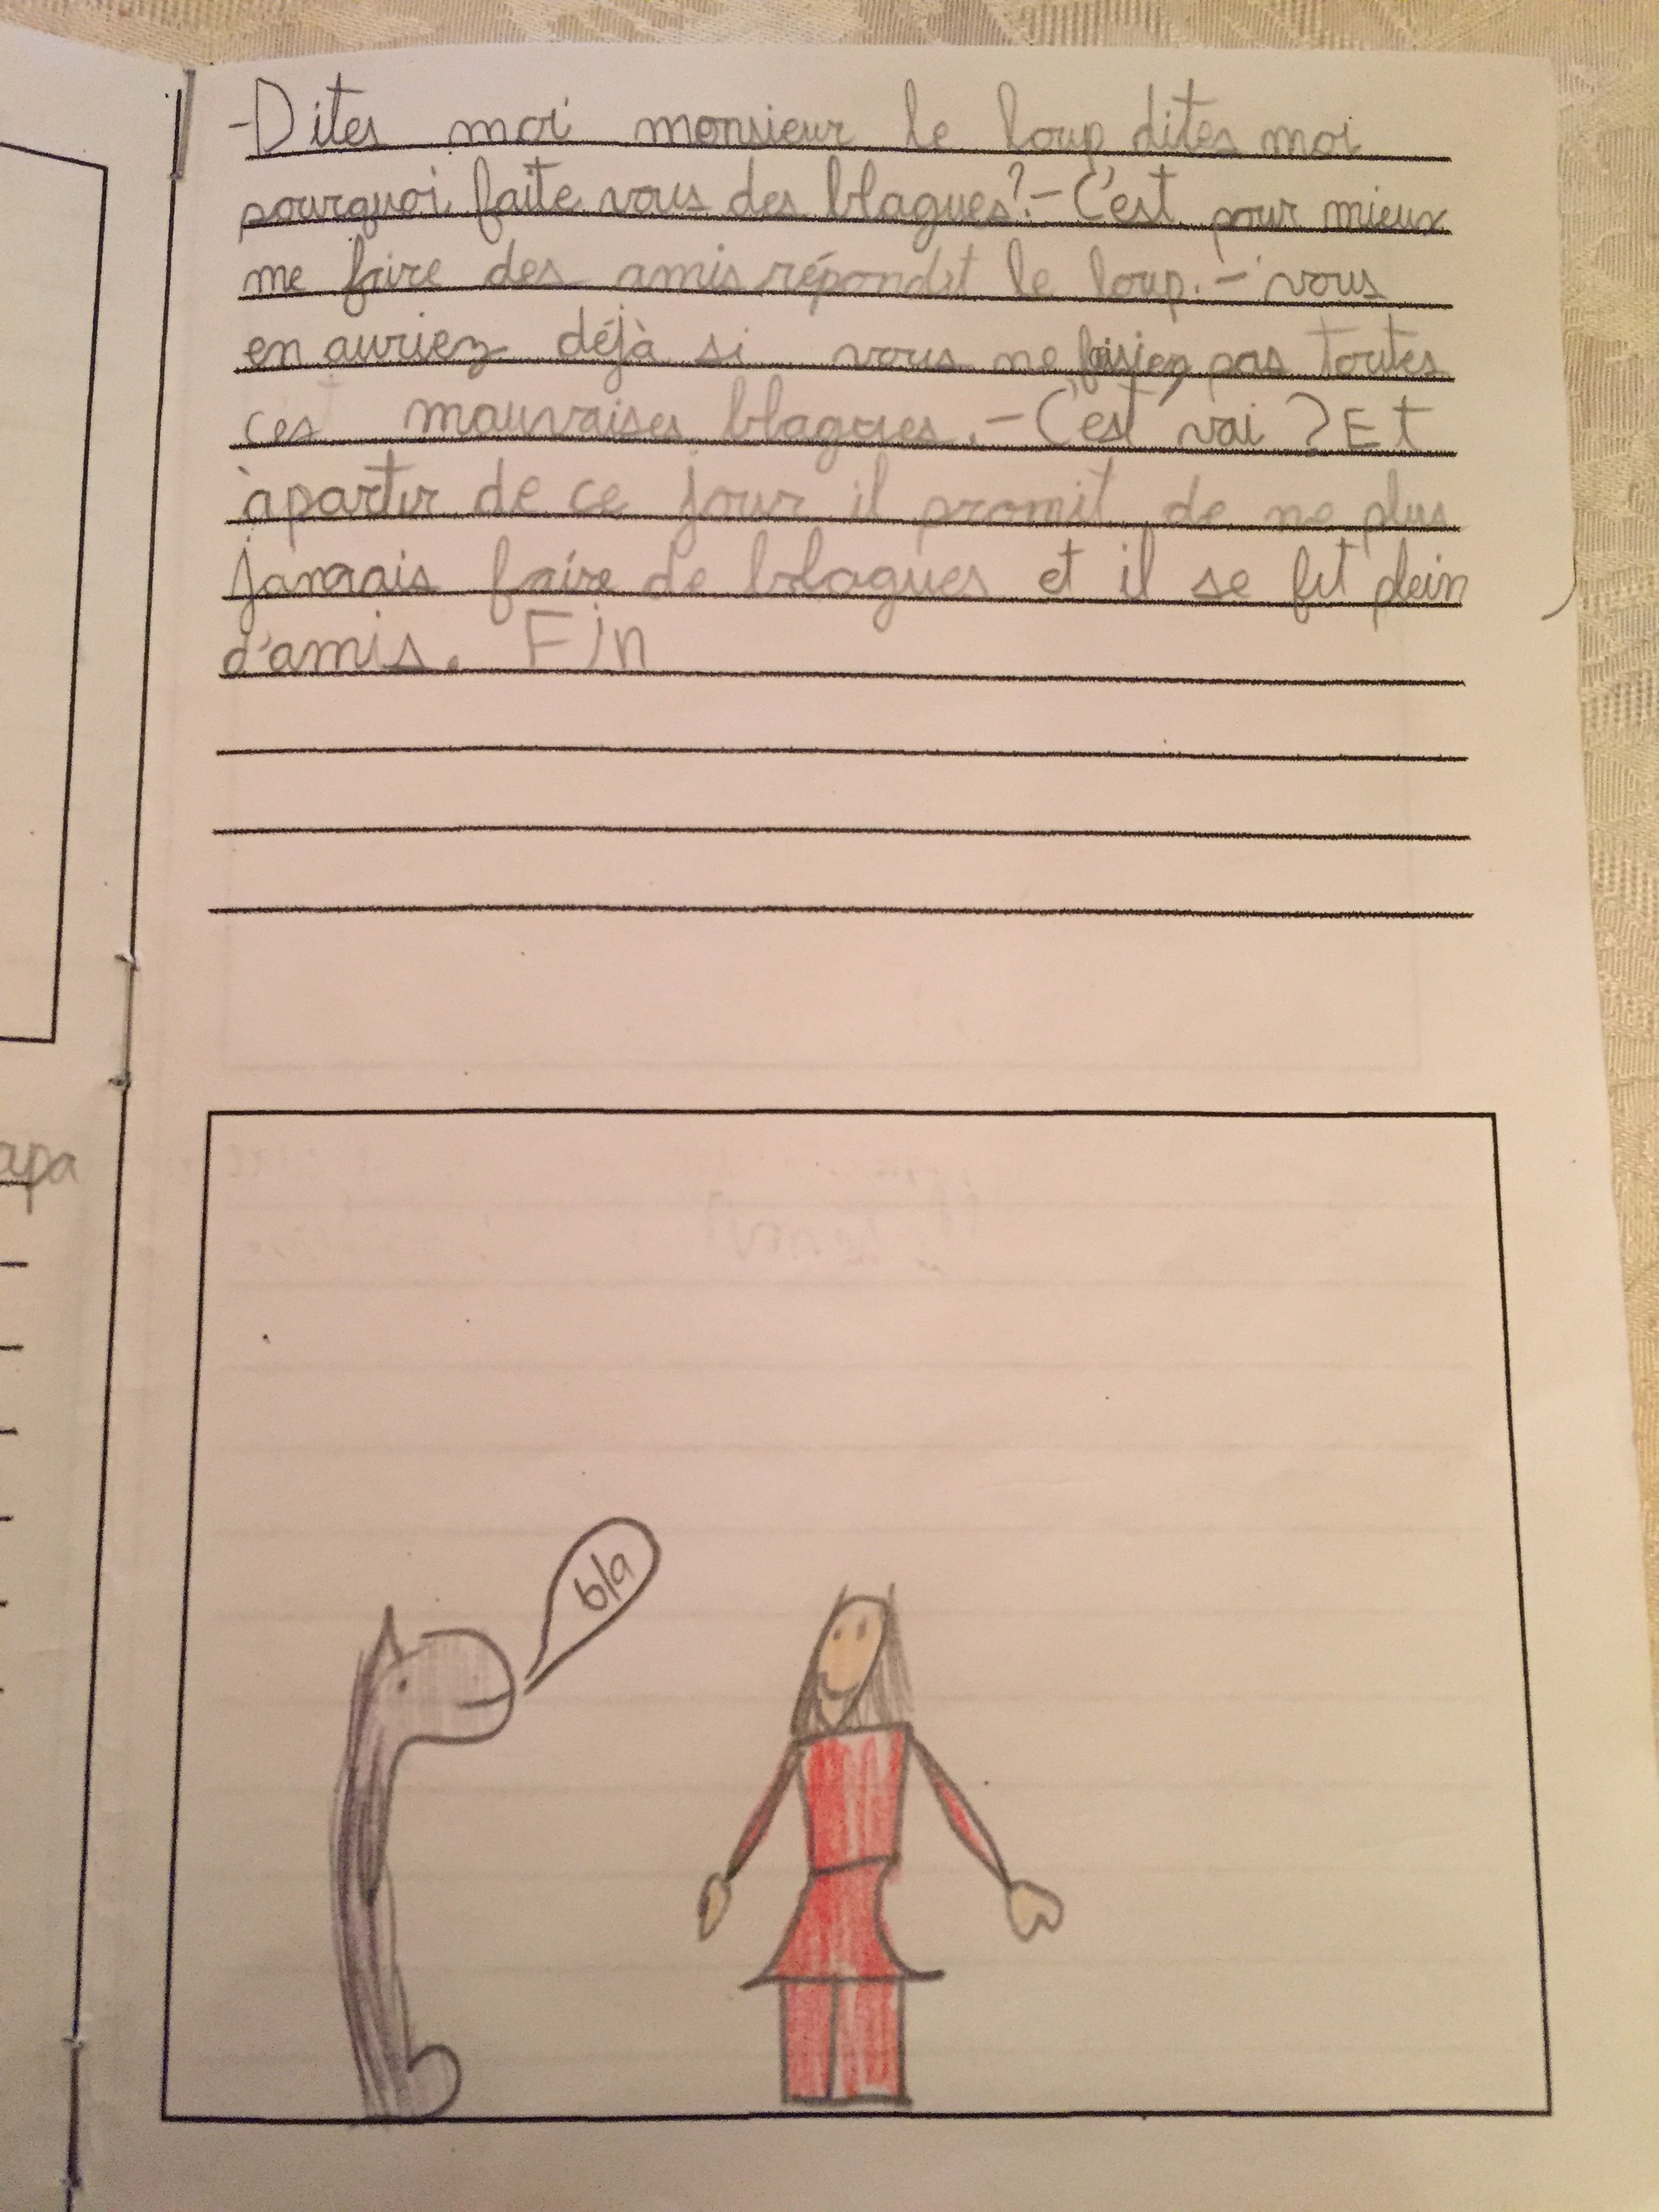 -Dites moi monsieur le loup dites moi
pourquoi faite vous des blagues?-C'est pour mieux
me faire des amis répondit le loup.-vous
en auriez déjà si vous ne faisiez pas toutes
ces mauvaises blagues.-C'est vai ? Et
àpartir de ce jour il promit de ne plus
jamais faire de blagues et il se fit plein
d'amis. Fin
apa
bla